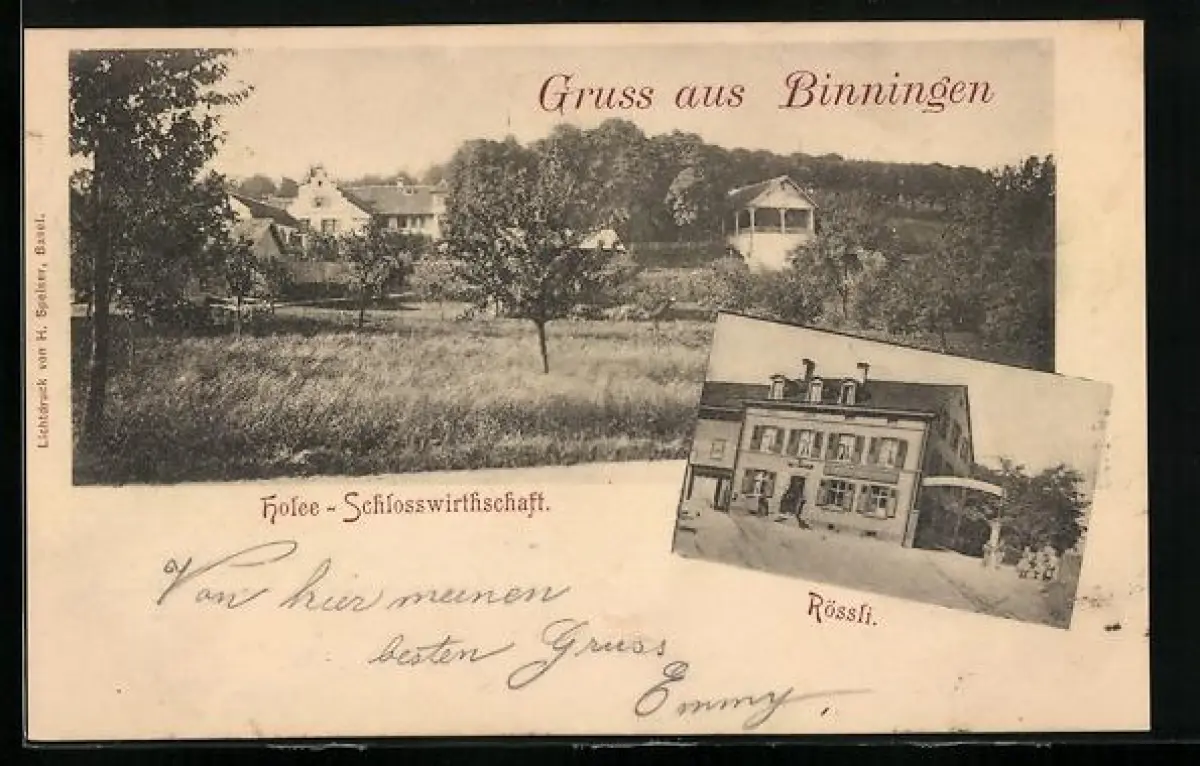 Gruss aus Binningen
Lichtdruck von H. Speiser, Basel.
Holee - Schlosswirthschaft.
Rössli.
Von hier meinen
besten Gruss
Emmy.